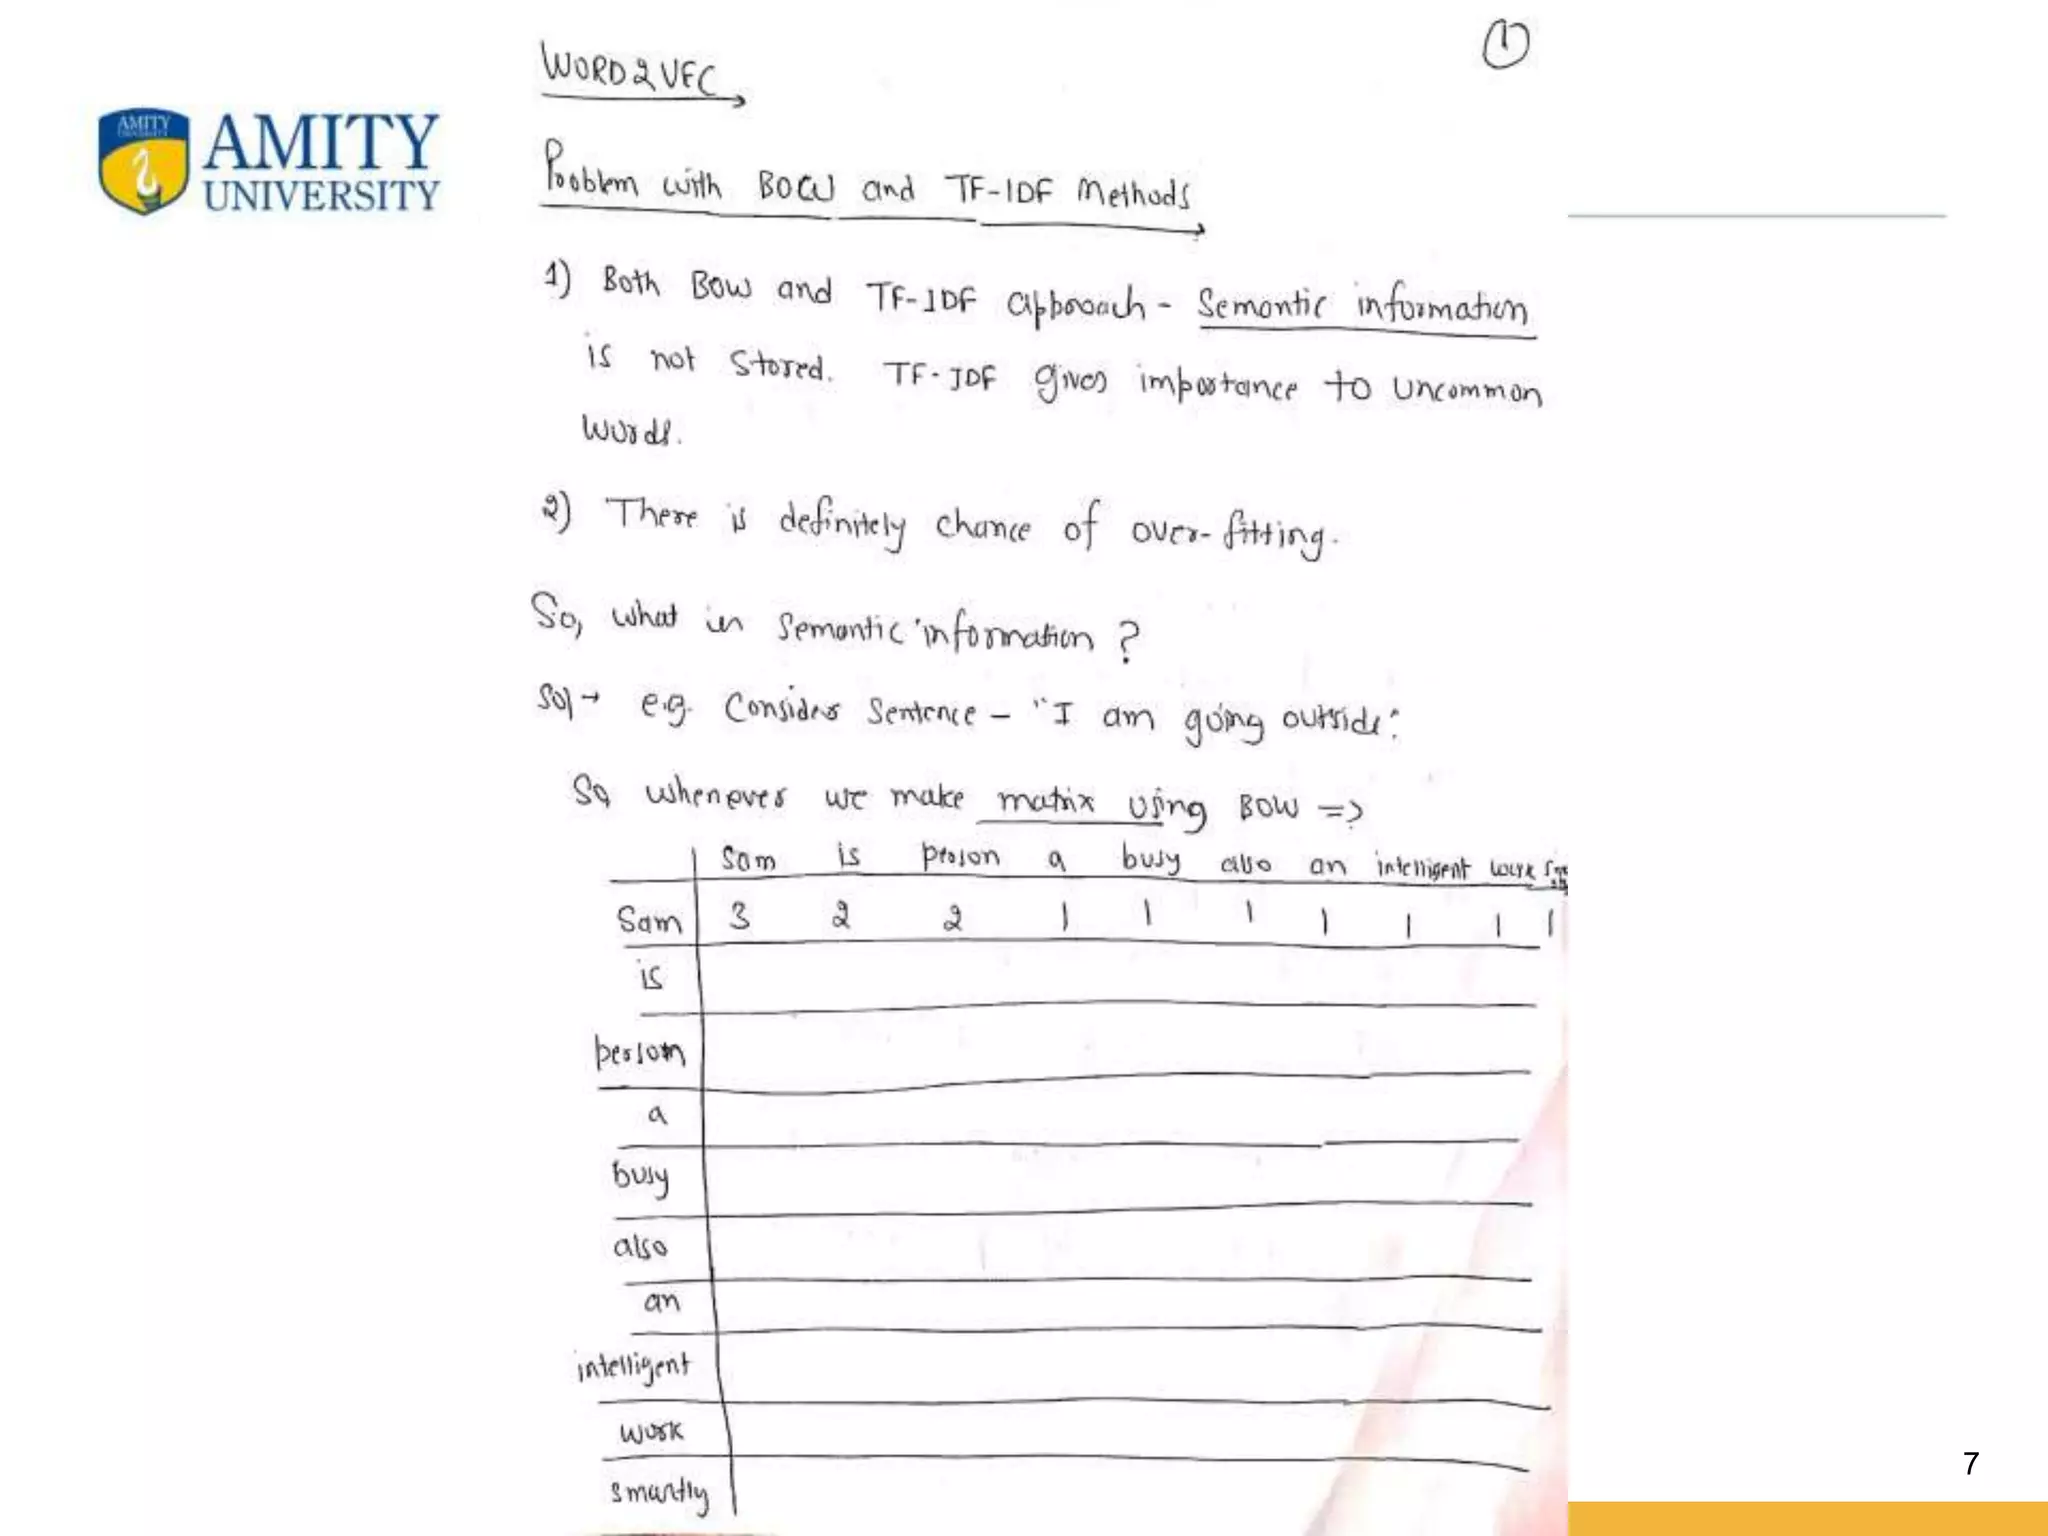 ①
WORD2VEC
AMITY
UNIVERSITY
AMITY
Problem with BOW and TF-IDF Methods
1) Both BOW and TF-IDF approach - Semantic information
is not stored. TF-IDF gives importance to uncommon
words.
2) There is definitely chance of over-fitting.
So, what is semantic information ?
Sol→ e.g. Consider Sentence – "I am going outside".
So whenever we make matrix using BOW =>
Sam is person a busy also an intelligent work
Sam 3 2 2 1 1 1 1 1 1 1
is
person
a
busy
also
an
intelligent
work
smartly
7